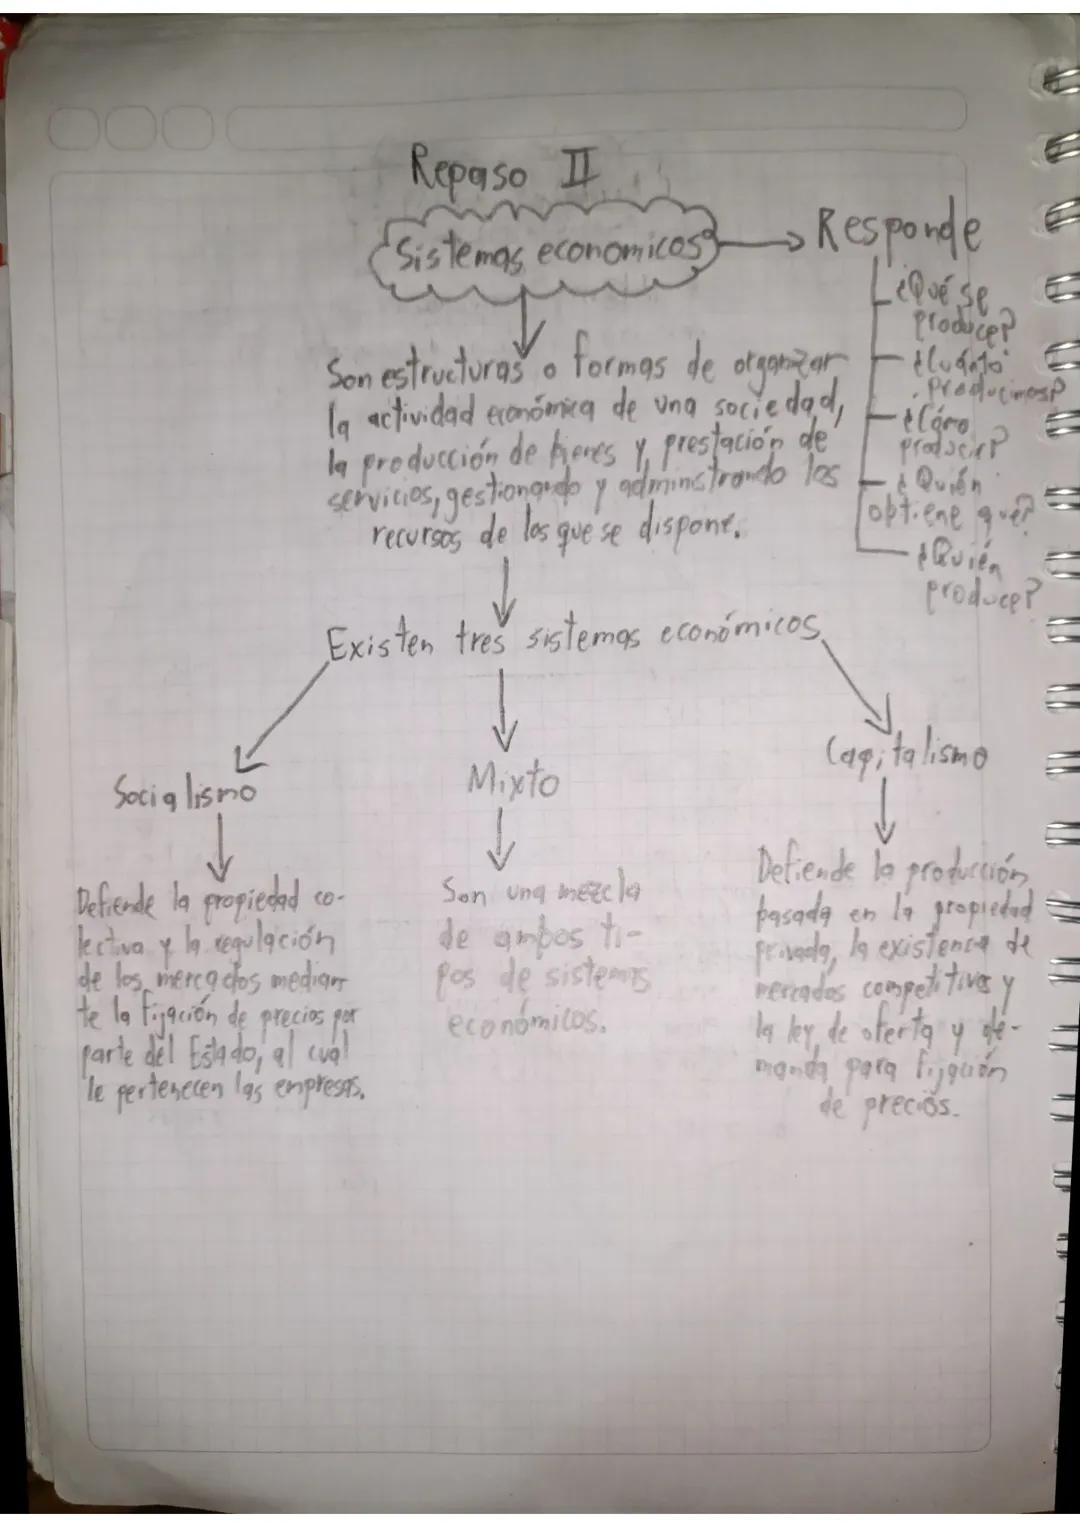 Repaso II
Sistemas economicos
Responde
¿Qué se
produce?
¿Cuánto
producimos?
¿Cómo
producir?
¿Quién
obtiene que?
¿Quién
produce?
Son estructuras o formas de organizar
la actividad económica de una sociedad,
la producción de bienes y prestación de
servicios, gestionando y administrando los
recursos de los que se dispone.
Existen tres sistemas económicos
Socialismo
Defiende la propiedad co-
lectiva y la regulación
de los mercados median-
te la fijación de precios por
parte del Estado, al cual
le pertenecen las empresas.
Mixto
Son una mezcla
de ambos ti-
pos de sistemas
económicos.
Capitalismo
Defiende la producción
basada en la propiedad
privada, la existencia de
mercados competitivos y
la ley de oferta y de-
manda para fijación
de precios.